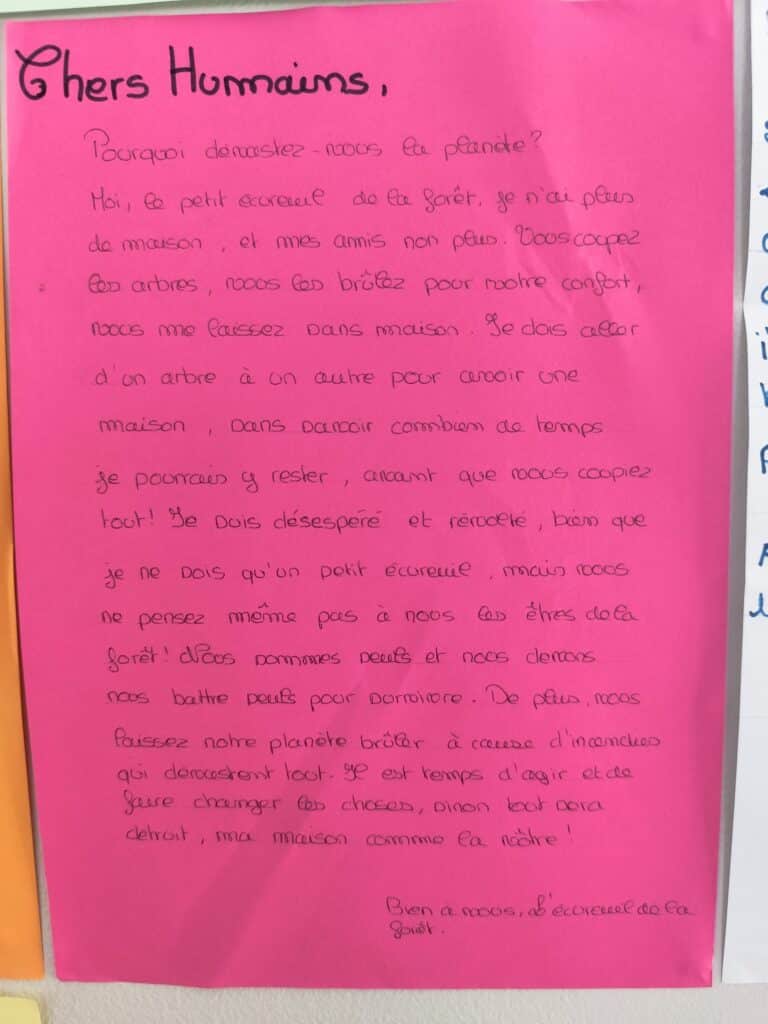 Chers Humains,
Pourquoi dévastez-vous la planète?
Moi, le petit écureuil de la forêt, je n'ai plus
de maison, et mes amis non plus. Vous coupez
les arbres, vous les brûlez pour votre confort,
vous me laissez sans maison. Je dois aller
d'un arbre à un autre pour avoir une
maison, sans savoir combien de temps
je pourrais y rester, avant que vous coupiez
tout! Je suis désespéré et révolté, bien que
je ne sois qu'un petit écureuil, mais vous
ne pensez même pas à nous les êtres de la
forêt! Nous sommes seuls et nous devons
nous battre seuls pour survivre. De plus, vous
laissez notre planète brûler à cause d'incendies
qui dévastent tout. Il est temps d'agir et de
faire changer les choses, sinon tout sera
détruit, ma maison comme la vôtre!
Bien à vous, L'écureuil de la
forêt.